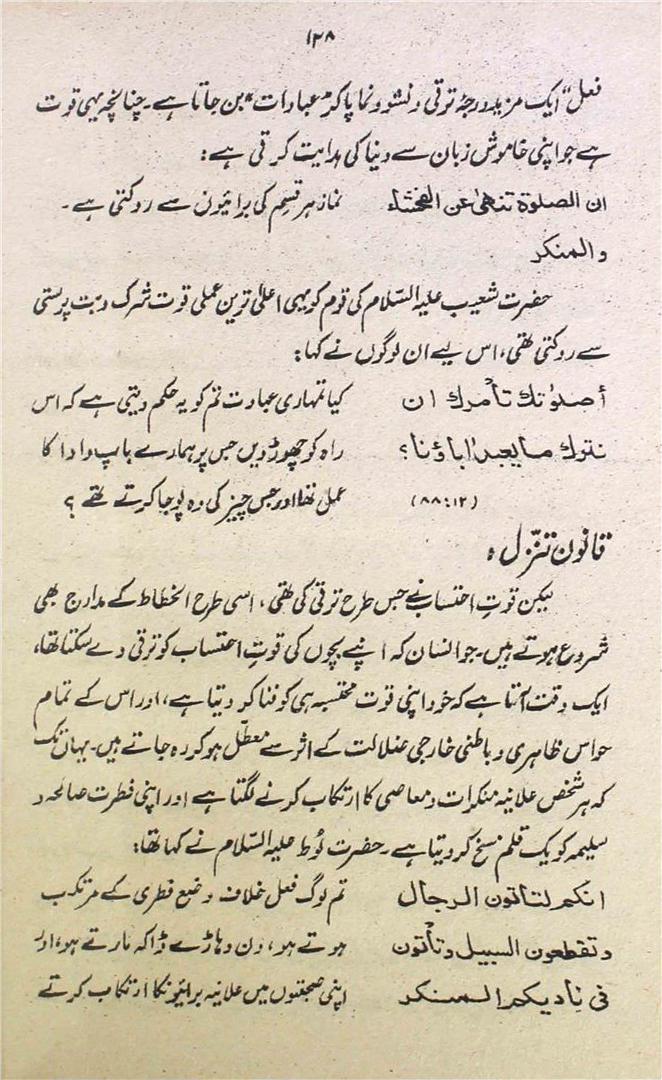 ۱۲۸
فعل" ایک مزید درجۂ ترقی و نشو ونما پا کر "عبادات" بن جاتا ہے۔ چنانچہ یہی قوت
ہے جو اپنی خاموش زبان سے دنیا کی ہدایت کرتی ہے:
ان الصلوۃ تنھیٰ عن الفحشاء نماز ہر قسم کی برائیوں سے روکتی ہے۔
والمنکر
حضرت شعیب علیہ السّلام کی قوم کو یہی اعلیٰ ترین عملی قوت شرک و بت پرستی
سے روکتی تھی، اس لیے ان لوگوں نے کہا:
أصلوٰتک تأمرک ان کیا تمہاری عبادت تم کو یہ حکم دیتی ہے کہ اس
نترک مایعبد اٰباؤنا؟ راہ کو چھوڑ دیں جس پر ہمارے باپ دادا کا
(۸۸:۱۲) عمل تھا اور جس چیز کی وہ پوجا کرتے تھے ؟
قانون تنزّل:
لیکن قوتِ احتساب نے جس طرح ترقی کی تھی، اسی طرح انحطاط کے مدارج بھی
شروع ہوتے ہیں۔ جو انسان کہ اپنے بچوں کی قوتِ احتساب کو ترقی دے سکتا تھا،
ایک وقت آتا ہے کہ خود اپنی قوت محتسبہ ہی کو فنا کر دیتا ہے، اور اس کے تمام
حواس ظاہری و باطنی خارجی ضلالت کے اثر سے معطّل ہو کر رہ جاتے ہیں۔ یہاں تک
کہ ہر شخص علانیہ منکرات و معاصی کا ارتکاب کرنے لگتا ہے اور اپنی فطرت صالحہ و
سلیمہ کو یک قلم مسخ کر دیتا ہے۔ حضرت لُوط علیہ السّلام نے کہا تھا:
انکم لتاتون الرجال تم لوگ فعل خلاف وضع فطری کے مرتکب
وتقطعون السبیل وتأتون ہوتے ہو، دن دہاڑے ڈاکہ مارتے ہو، اور
فی نادیکم المنکر اپنی صحبتوں میں علانیہ برائیونکا ارتکاب کرتے